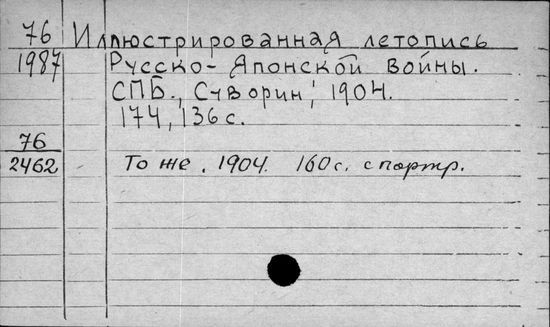 76 Иллюстрированная летопись
1987 Русско-Японской войны.
СПБ., Суворин, 1904.
174, 136 с.
76
2462 То же. 1904. 160 с. с портр.